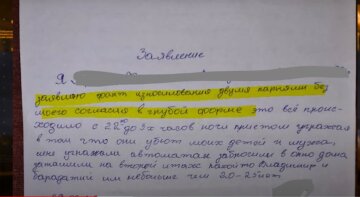 Заявление
Я
заявляю факт изнасилования двумя парнями без
моего согласия в грубой форме это всё проис-
ходило с 22:00 до 3х часов ночи при этом угрожая
в том что они убьют моих детей и мужа,
мне угрожали автоматам забросили в окно дома
затащили на второй этаж какой то Владимир и
бородатий им небольше чем 20-25 лет